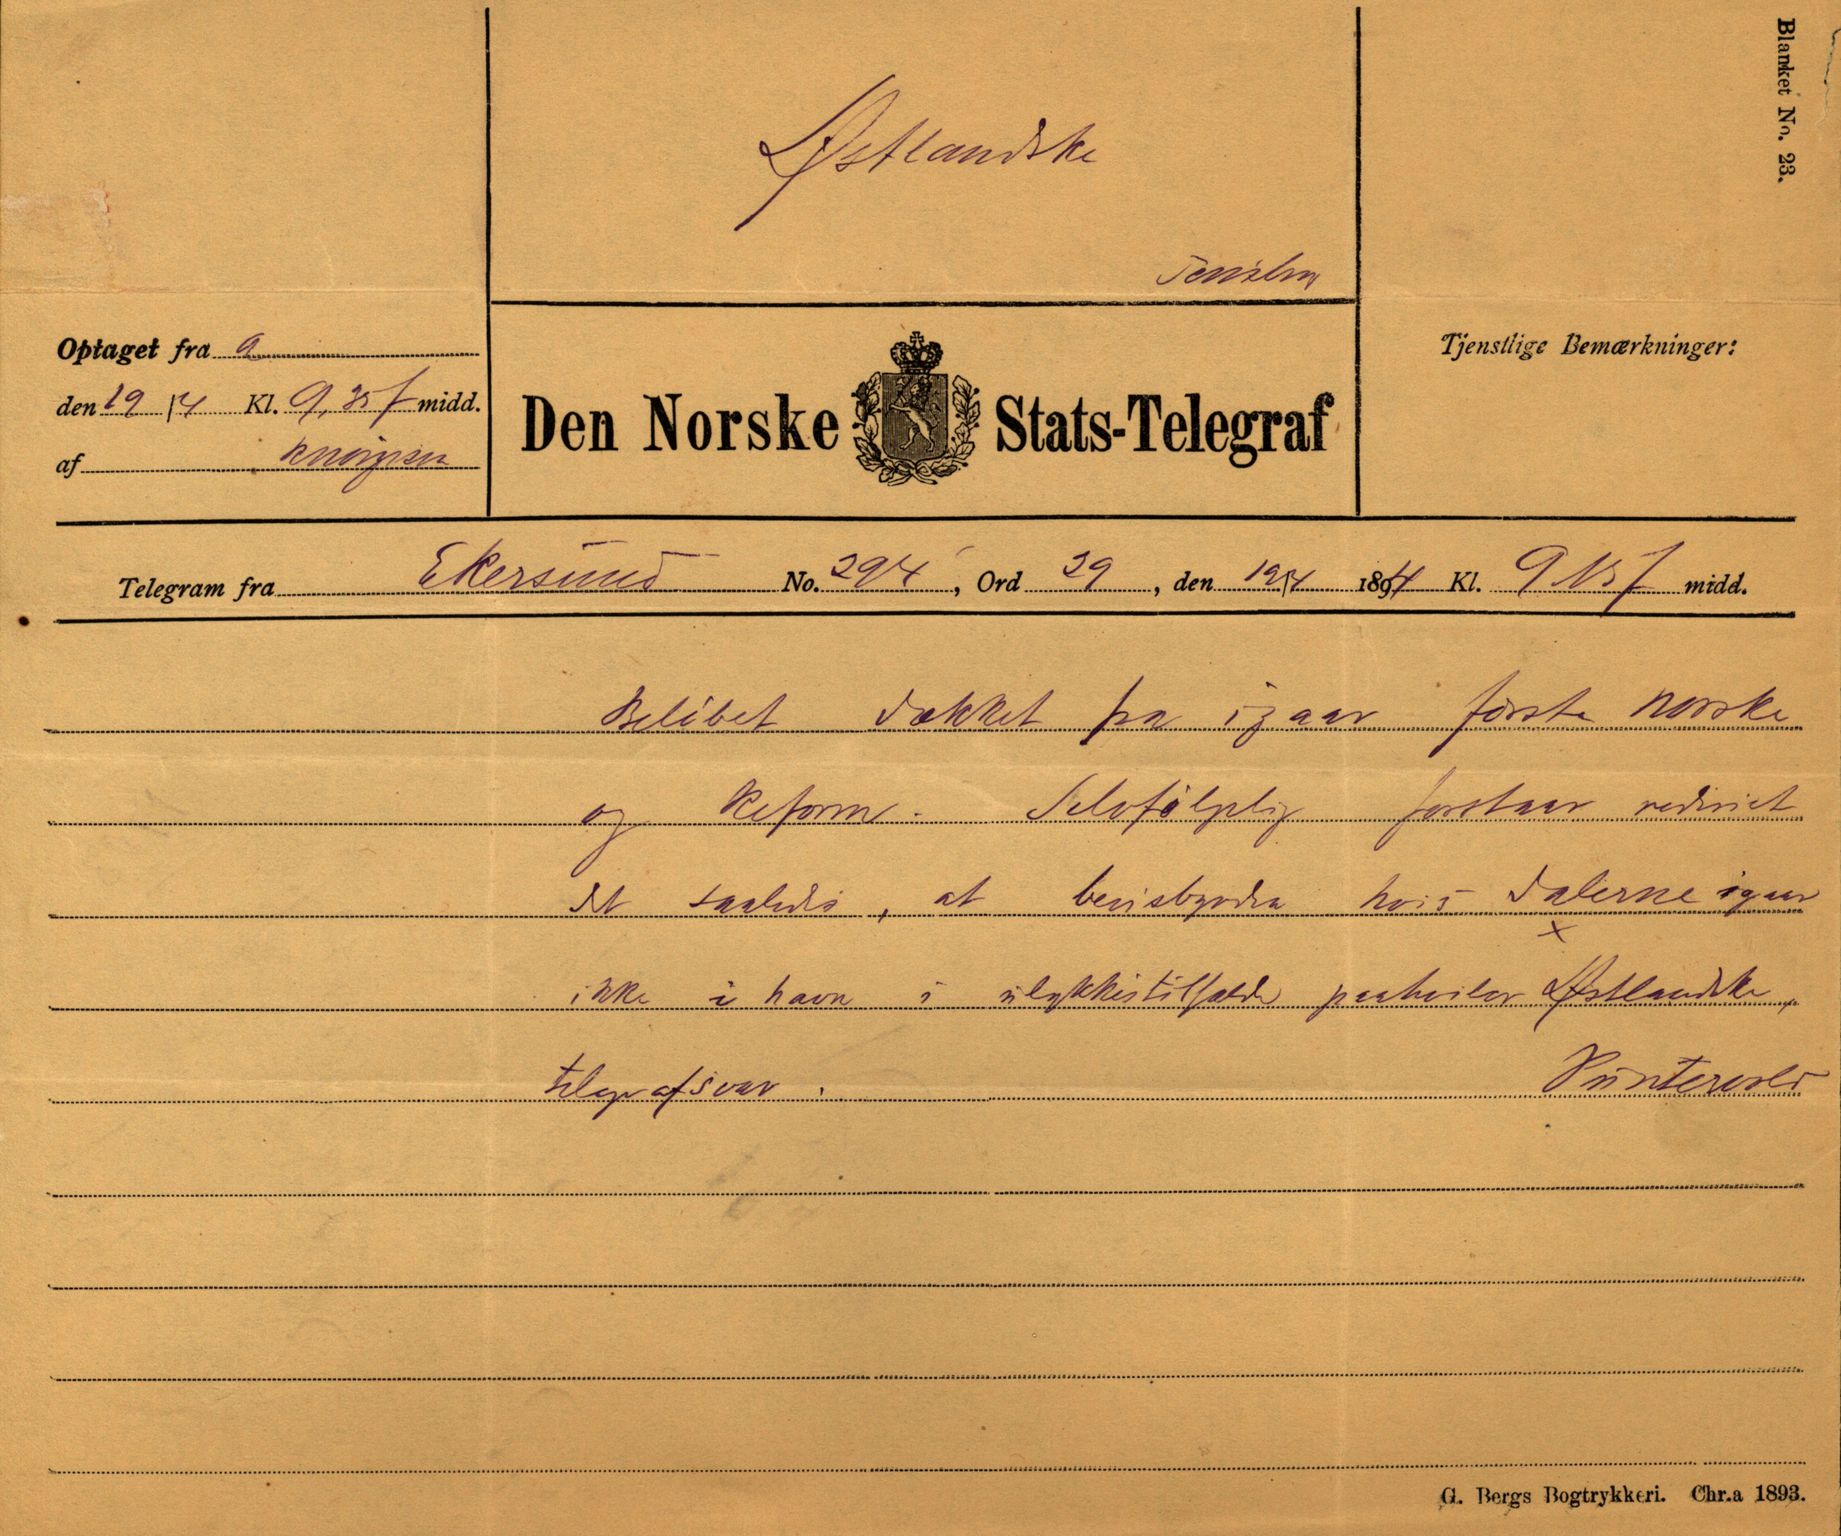 Blanket No. 23.
Østlandske
Optaget fra a
den 19/4 Kl. 9,35 f midd.
af
Den Norske Stats-Telegraf
Tjenstlige Bemærkninger:
Telegram fra Ekersund No. 294, Ord 29, den 19/4 1894 Kl. 9 15 f midd.
Beløbet dækket fra igaar første norske
og Reform. Selvfølgelig forstaar
det saaledes, at bevisbyrden hvis Dalerne igaar
ikke i havn i ulykkestilfælde paahviler Østlandske,
telegrafsvar. Puntervold
G. Bergs Bogtrykkeri. Chr.a 1893.